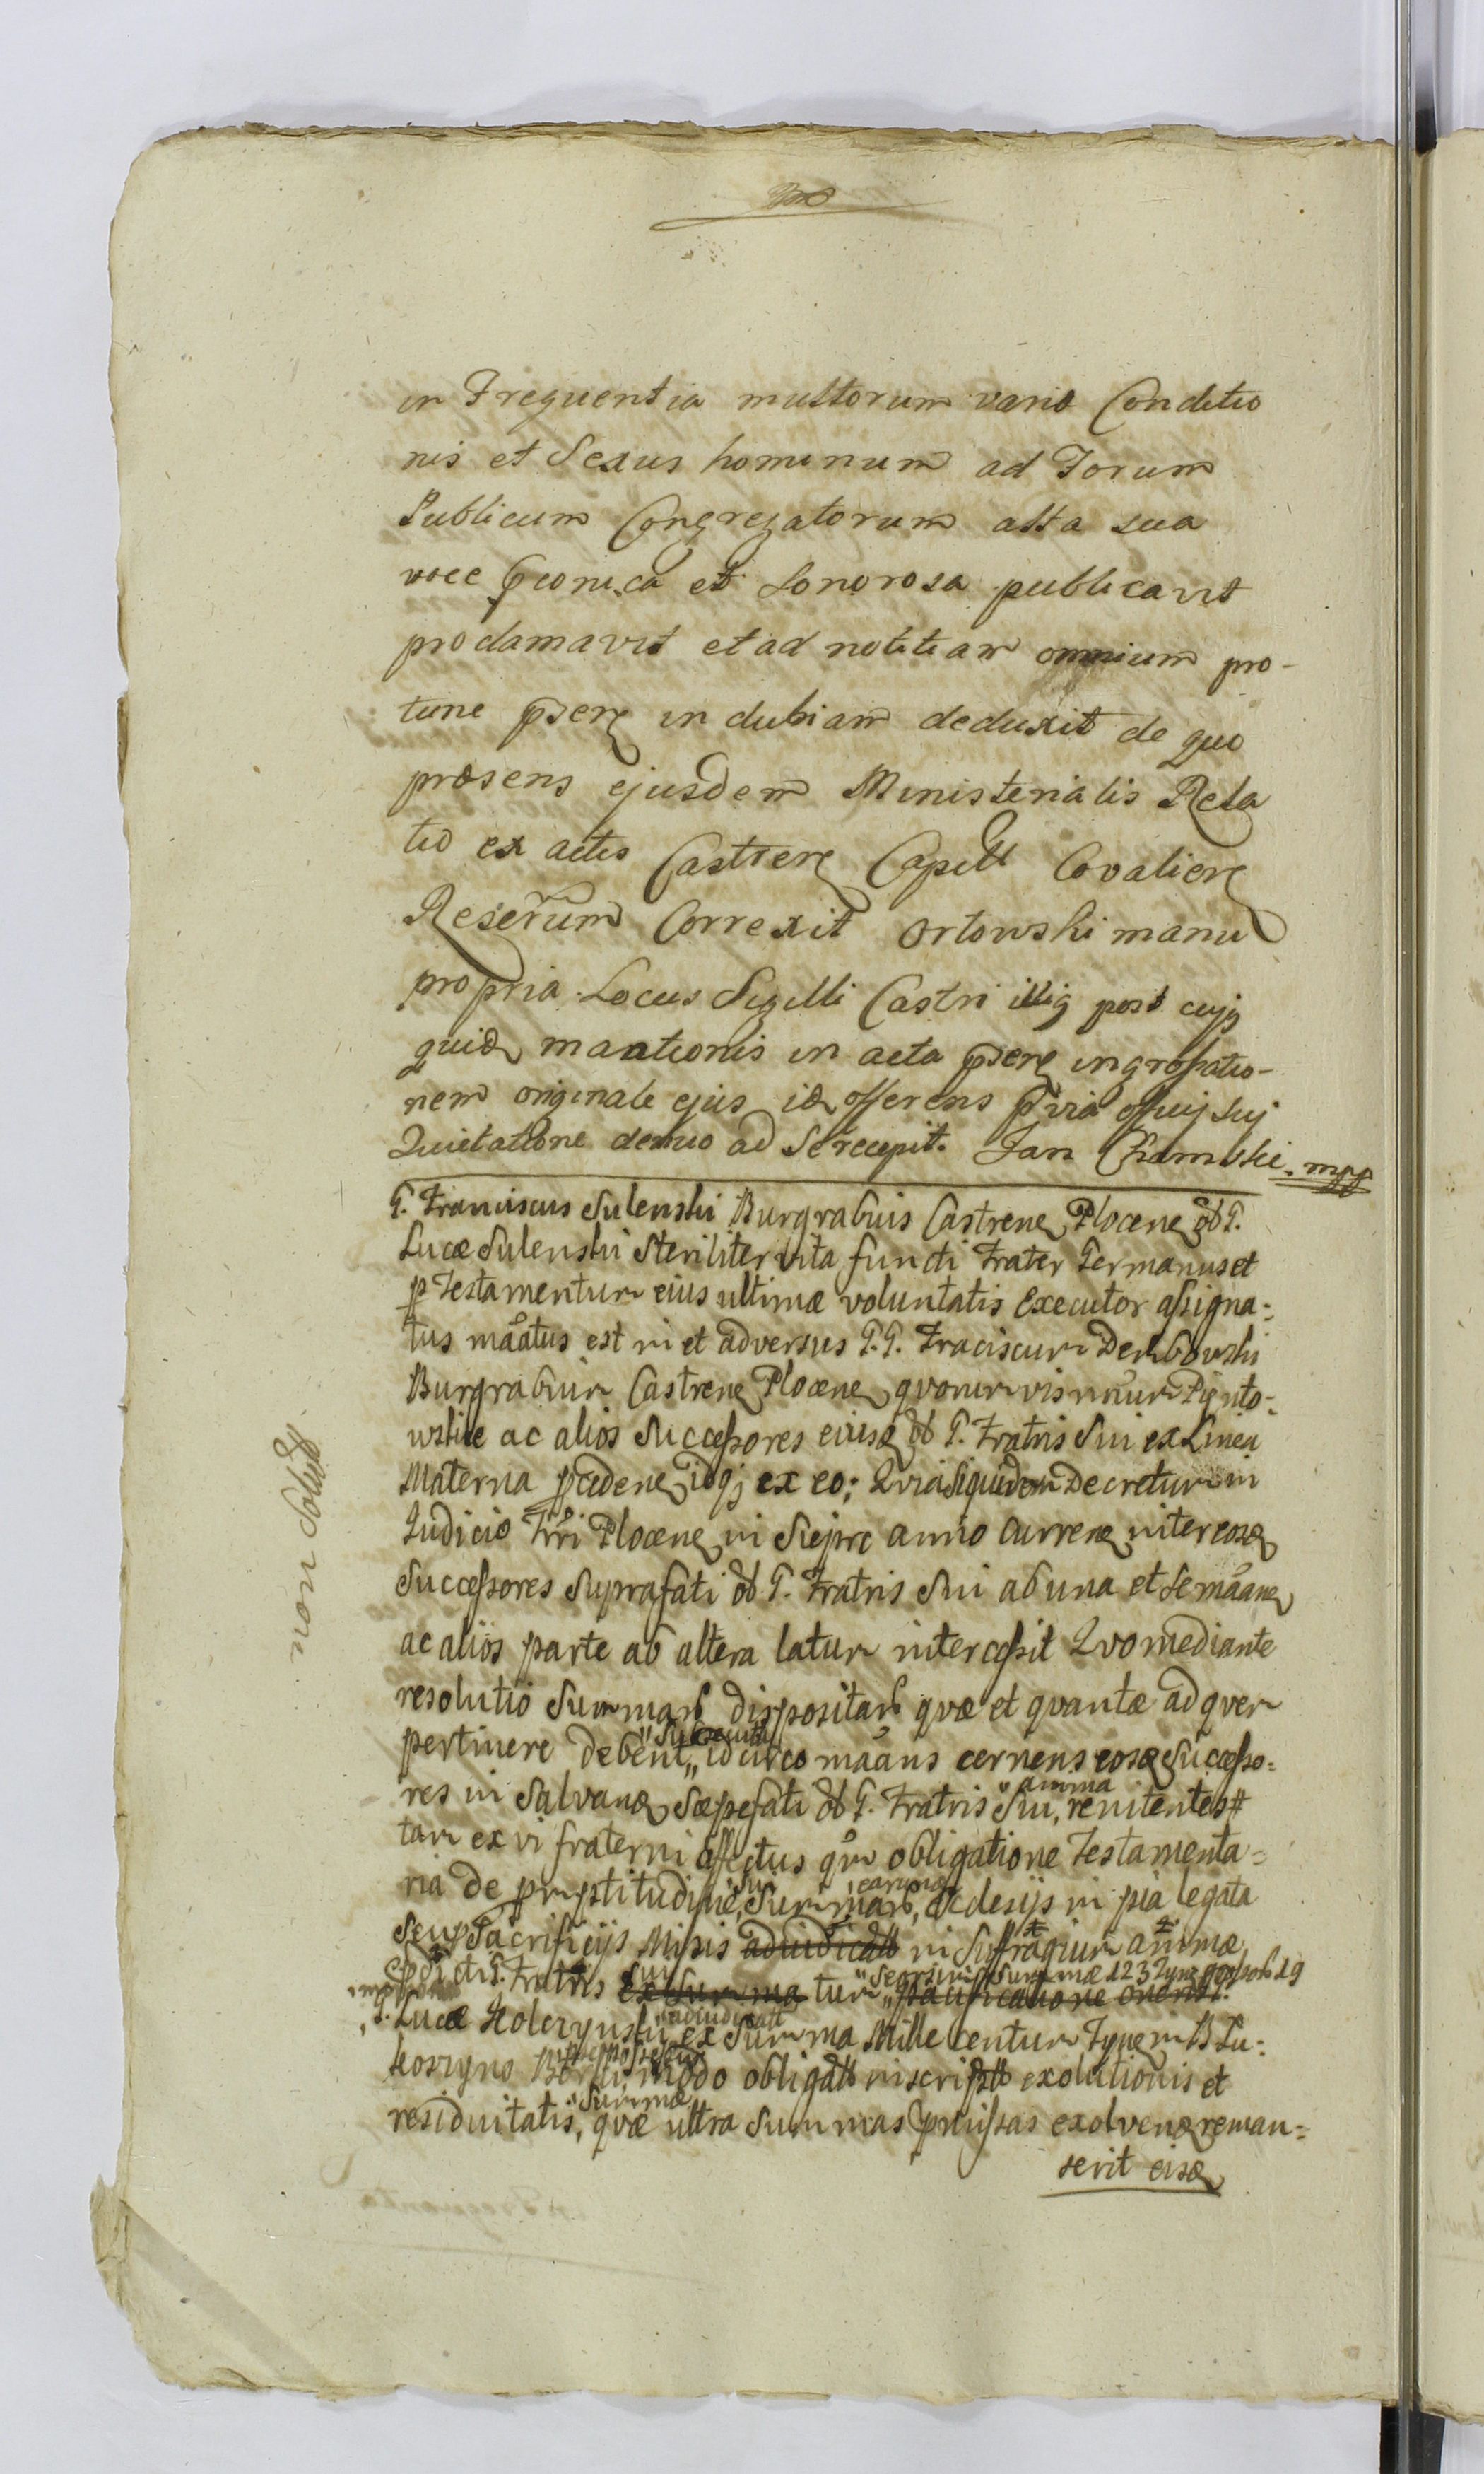 in Frequentia multorum varia Conditio
nis et Sexus hominum ad Forum
Publicum Congregatorum alta sua
voce et Sonorosa publicavit
proclamavit et ad notitiam omnium pro-
tunc in dubiam deduxit de quo
præsens ejusdem Ministerialis Rela
tio ex actis Castren Capitt Covalien
Reserum Correxit Orłowski manu
propria Locus Sigilli Castri illig post cujg
quid maationis in acta ingrossatio-
nem originale ejus id offerens officij sui
Quietatione denuo ad Se recepit. Jan mpp
G. Franciscus Sulenski Burgrabius Castrene Plocene ol G.
Lucæ Sulenski Steriliter vita functi Frater Germanus et
p Testamentum eius ultimæ voluntatis Executor assigna=
tus maatus est in et adversus G. G. Fraciscum Dembowski
Burgrabium Castrene Plocene
ac alios Successores eiusd ol G. Fratris Sui ex Linea
Materna idq ex eo; Qvia Siquidem Decretum in
Judicio Plocene in Sierpc anno Currene inter eosd
Successores Suprafati ol G. Fratris Sui ab una et Se maane
ac alios parte ab altera latum intercessit Qvo mediante
resolutio Summarb dispositarb qvæ et qvantæ ad qvem
pertinere debent, " Subsecuta idcirco maans cernens eosd Successo=
res in Salvand Sæpefati ol G. Fratris Sui, " anima renitentes #
tam ex vi fraterni affectus qm obligatione Testamenta=
ria de " sui Summarb, " earumd Ecclesijs in pia legata
Seu Sacrificijs Missis adiudicatb in Suffragium animæ
G. Fratris Sui ex Summa tum " Seorsim Summæ 123
G. Lucæ " adiudicatt ex Summa Mille centum Tynf
modo obligatb inscriptb exolutionis et
residuitatis, " Summæ qvæ ultra Summas pmissas exolvend reman=
serit eisd
non Solutt